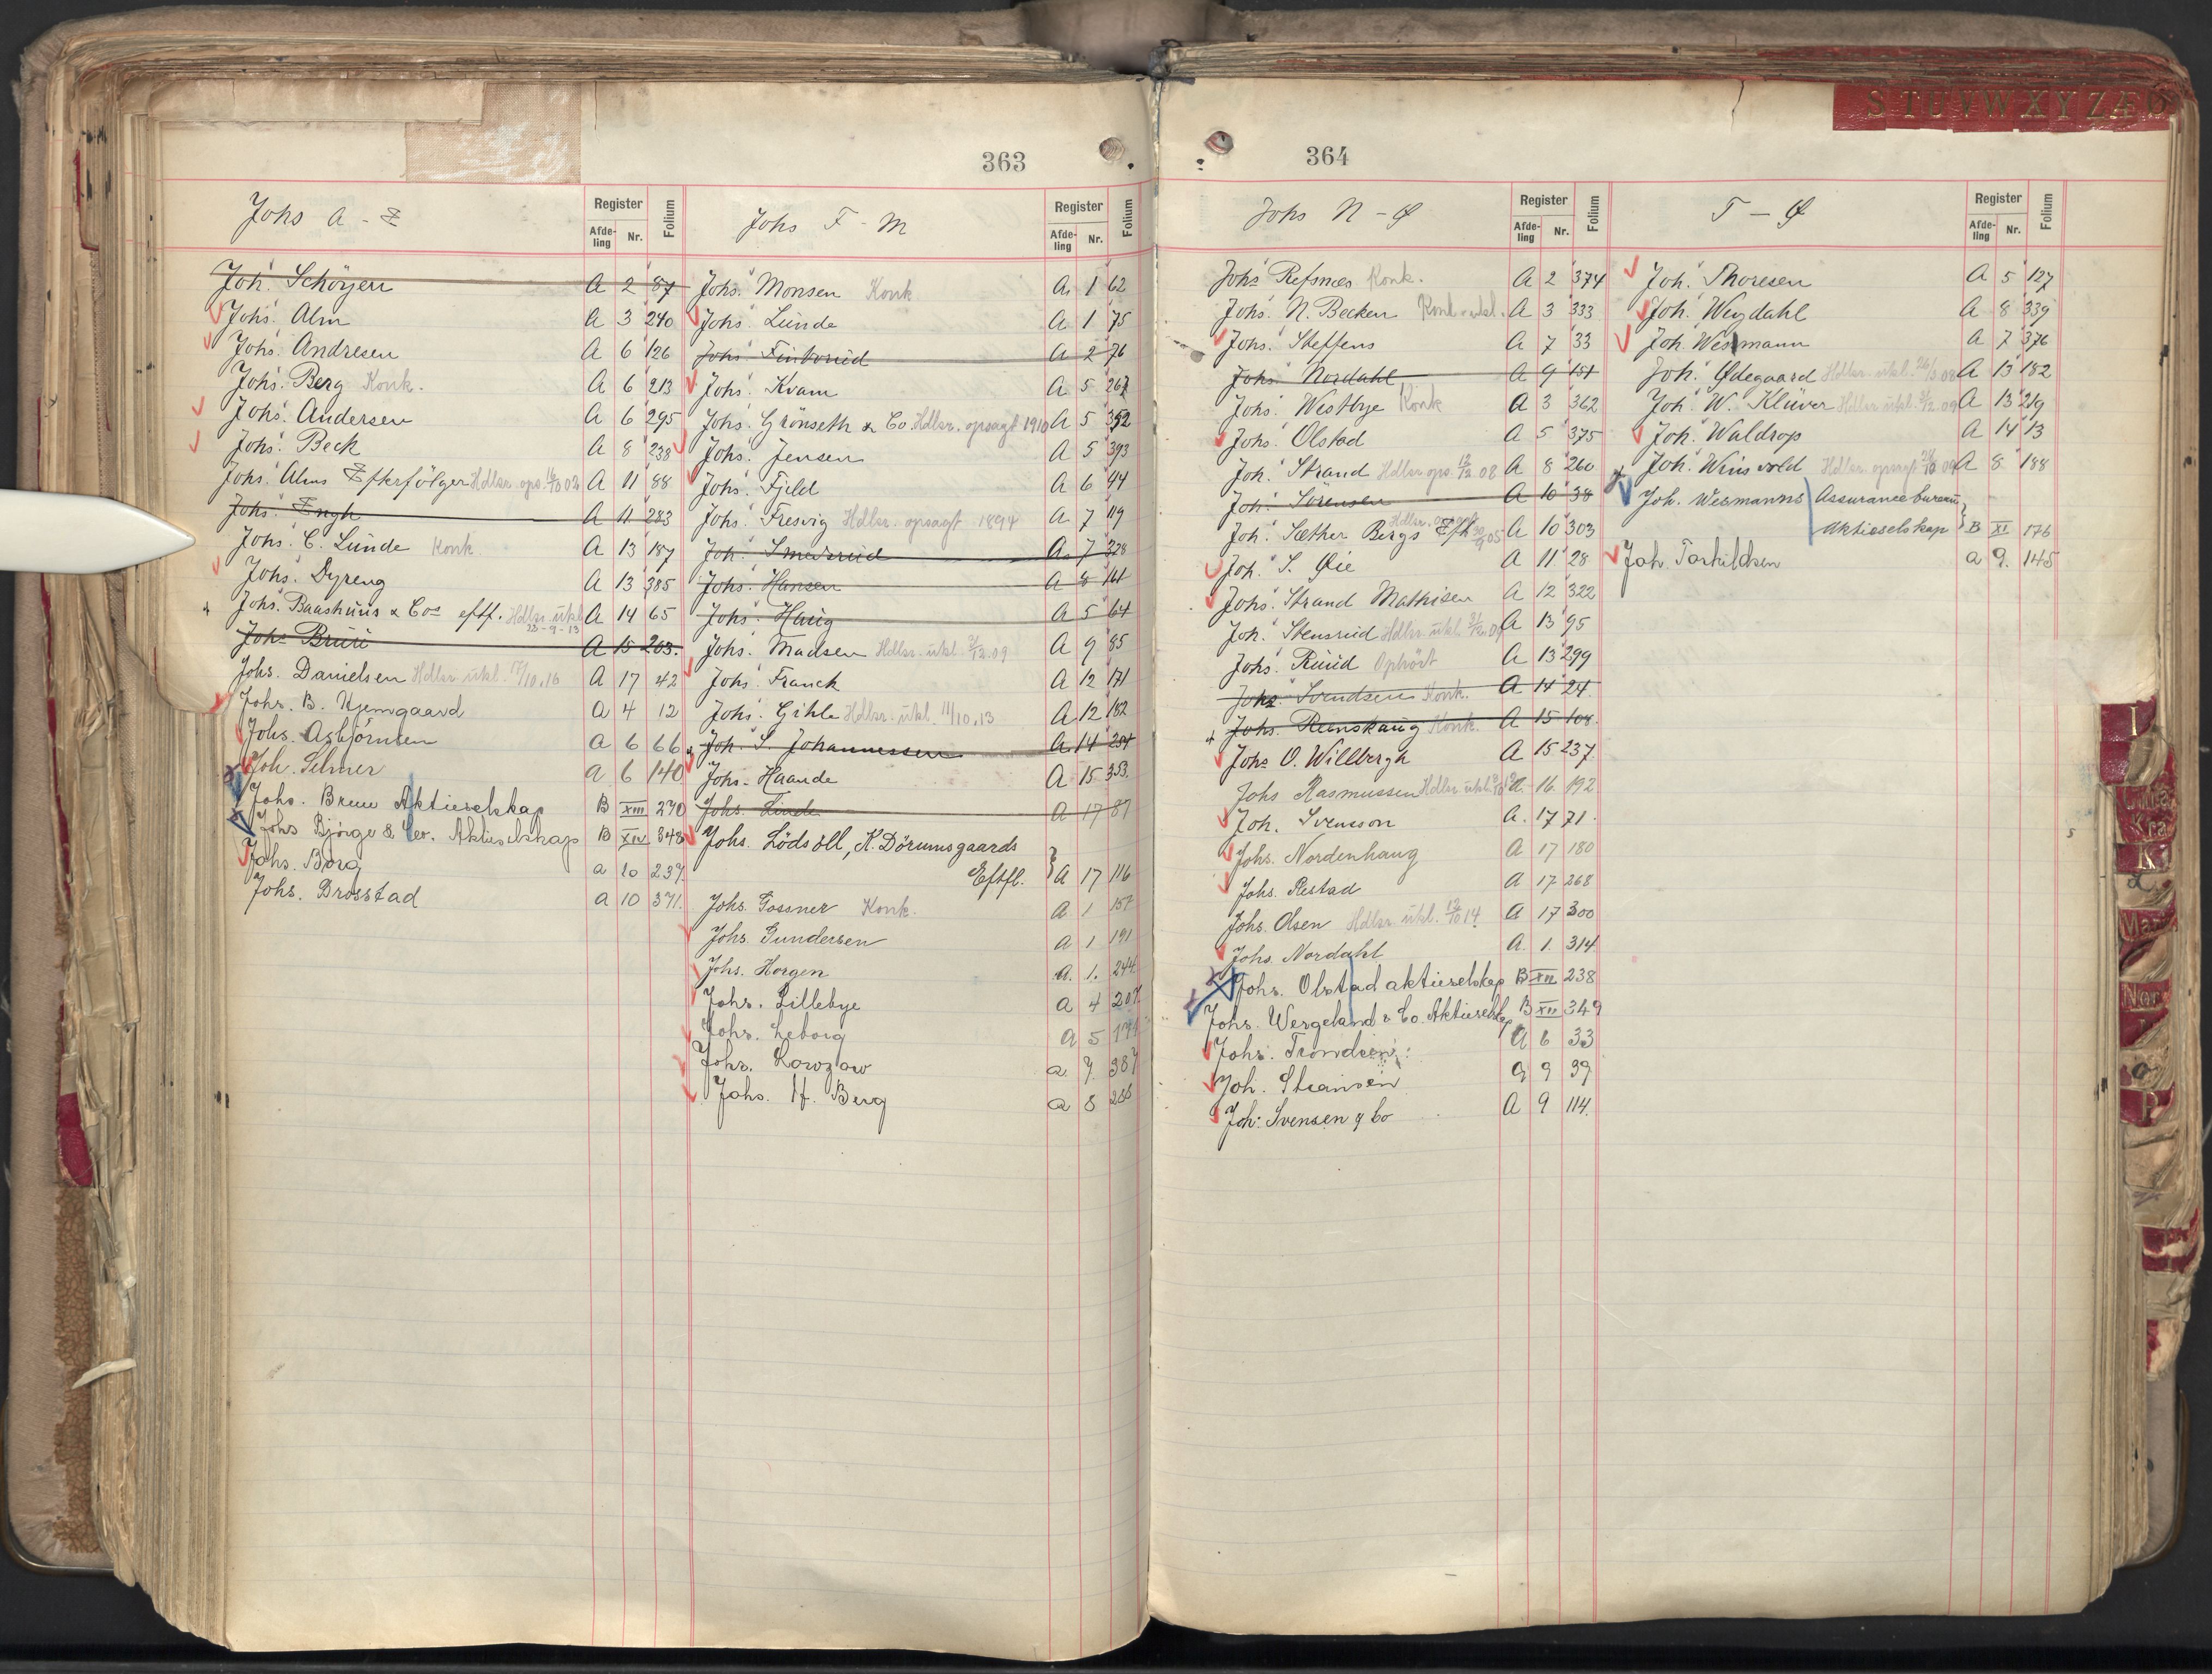 363
Johs A - E
Register
Afde-
ling
Nr.
Folium
Joh. Schöyen A 2 87
Johs. Alm A 3 240
Johs. Andresen A 6 126
Johs. Berg Konk. A 6 213
Johs. Andersen A 6 295
Johs. Beck A 8 238
Johs. Alms Efterfölger Hdlsr. ops. A 11 88
Johs. Engh A 11 283
Johs. C. Lunde Konk. A 13 187
Johs. Dyreng A 13 385
Johs. Baashuus & Co eftf. Hdlsr. ukl. A 14 65
23-9-13
Johs Bruu A 15 203.
Johs. Danielsen Hdlsr. ukl. 17/10.16 A 17 42
Johs. B. Hjemgaard a 4 12
Johs. Asbjörnsen a 6 66
Joh. Selmer a 6 140
Johs. Bruu Aktieselskap B XIII 270
Johs Bjørge & Co. Aktieselskap B XIV 348
Johs. Borg a 10 237
Johs. Brosstad a 10 371.
Johs F - M
Register
Afde-
ling
Nr.
Folium
Johs. Monsen Konk A 1 62
Johs. Lunde A 1 75
Johs Finborud A 2 76
Johs. Kvam A 5 267
Johs. Grönseth & Co. Hdlsr. opsagt 1910 A 5 352
Johs. Jensen A 5 393
Johs. Fjeld A 6 44
Johs. Fresvig Hdlsr. opsagt 1894 A 7 119
Joh. Smedsrud A 7 328
Johs. Hansen A 8 161
Johs. Haug A 5 64
Johs. Madsen Hdlsr. ukl. 3/12.09 A 9 85
Johs. Franck A 12 171
Johs. Gihle Hdlsr. ukl. 11/10.13 A 12 182
Joh. S. Johannessen A 14 254
Johs. Haande A 15 353.
Johs. Linde A 17 87
Johs. Lödsöll, K. Dörumsgaards
Eftfl. A 17 116
Johs. Gossner Konk. A 1 157
Johs. Gundersen a 1 191
Johs. Horgen a. 1. 244
Johs. Lillebye a 4 207
Johs. Leborg a 5 174
Johs. Lowzow a 7. 387
Johs. H. Berg a 8 256
364
Johs N - Ø
Register
Afde-
ling
Nr.
Folium
Johs Refsnæs Konk. A 2 374
Johs. N. Becken Konk. ukl. A 3 333
Johs. Steffens A 7 33
Johs. Nordahl A 9 151
Johs. Westbye Konk A 3 362
Johs. Olstad A 5 375
Joh. Strand Hdlsr. ops. 12/12 08 A 8 260
Joh. Sörensen A 10 38
Joh. Sæther Bergs Eft. A 10 303
Joh. S. Øie A 11 28
Johs. Strand Mathisen A 12 322
Joh. Stensrud Hdlsr. ukl. A 13 95
Johs. Ruud Ophört A 13 299
Johs. Svendsen Konk. A 14 24
Johs. Reenskaug Konk. A 15 108.
Johs O. Willbergh A 15 237
Johs Rasmussen Hdlsr. ukl. A. 16. 192
Joh. Svensson A. 17 71
Johs. Nordenhaug A 17 180
Johs. Restad A 17 268
Johs. Olsen Hdlsr. ukl. 12/10 14. A 17 300
Johs. Nordahl A. 1. 314
Johs. Olstad aktieselskap B XII 238
Johs. Wergeland & Co. Aktieselskap B XII 349
Johs. Trondsen a 6 33
Joh. Stiansen a 9 39
Joh. Svensen & Co A 9 114.
T - Ø
Register
Afde-
ling
Nr.
Folium
Joh. Thoresen A 5 127
Joh. Weydahl A 8 339
Joh. Wesmann A 7 376
Joh. Ødegaard Hdlsr. ukl. A 13 182
Joh. W. Klüver Hdlsr. ukl. 3/12.09 A 13 219
Joh. Waldrop A 14 13
Joh. Winsvold Hdlsr. opsagt A 8 188
Joh. Wesmanns Assurancebureau
Aktieselskap B XI 176
Joh. Torkildsen a 9. 145
S T U V W X Y Z Æ Ø
I
K
P